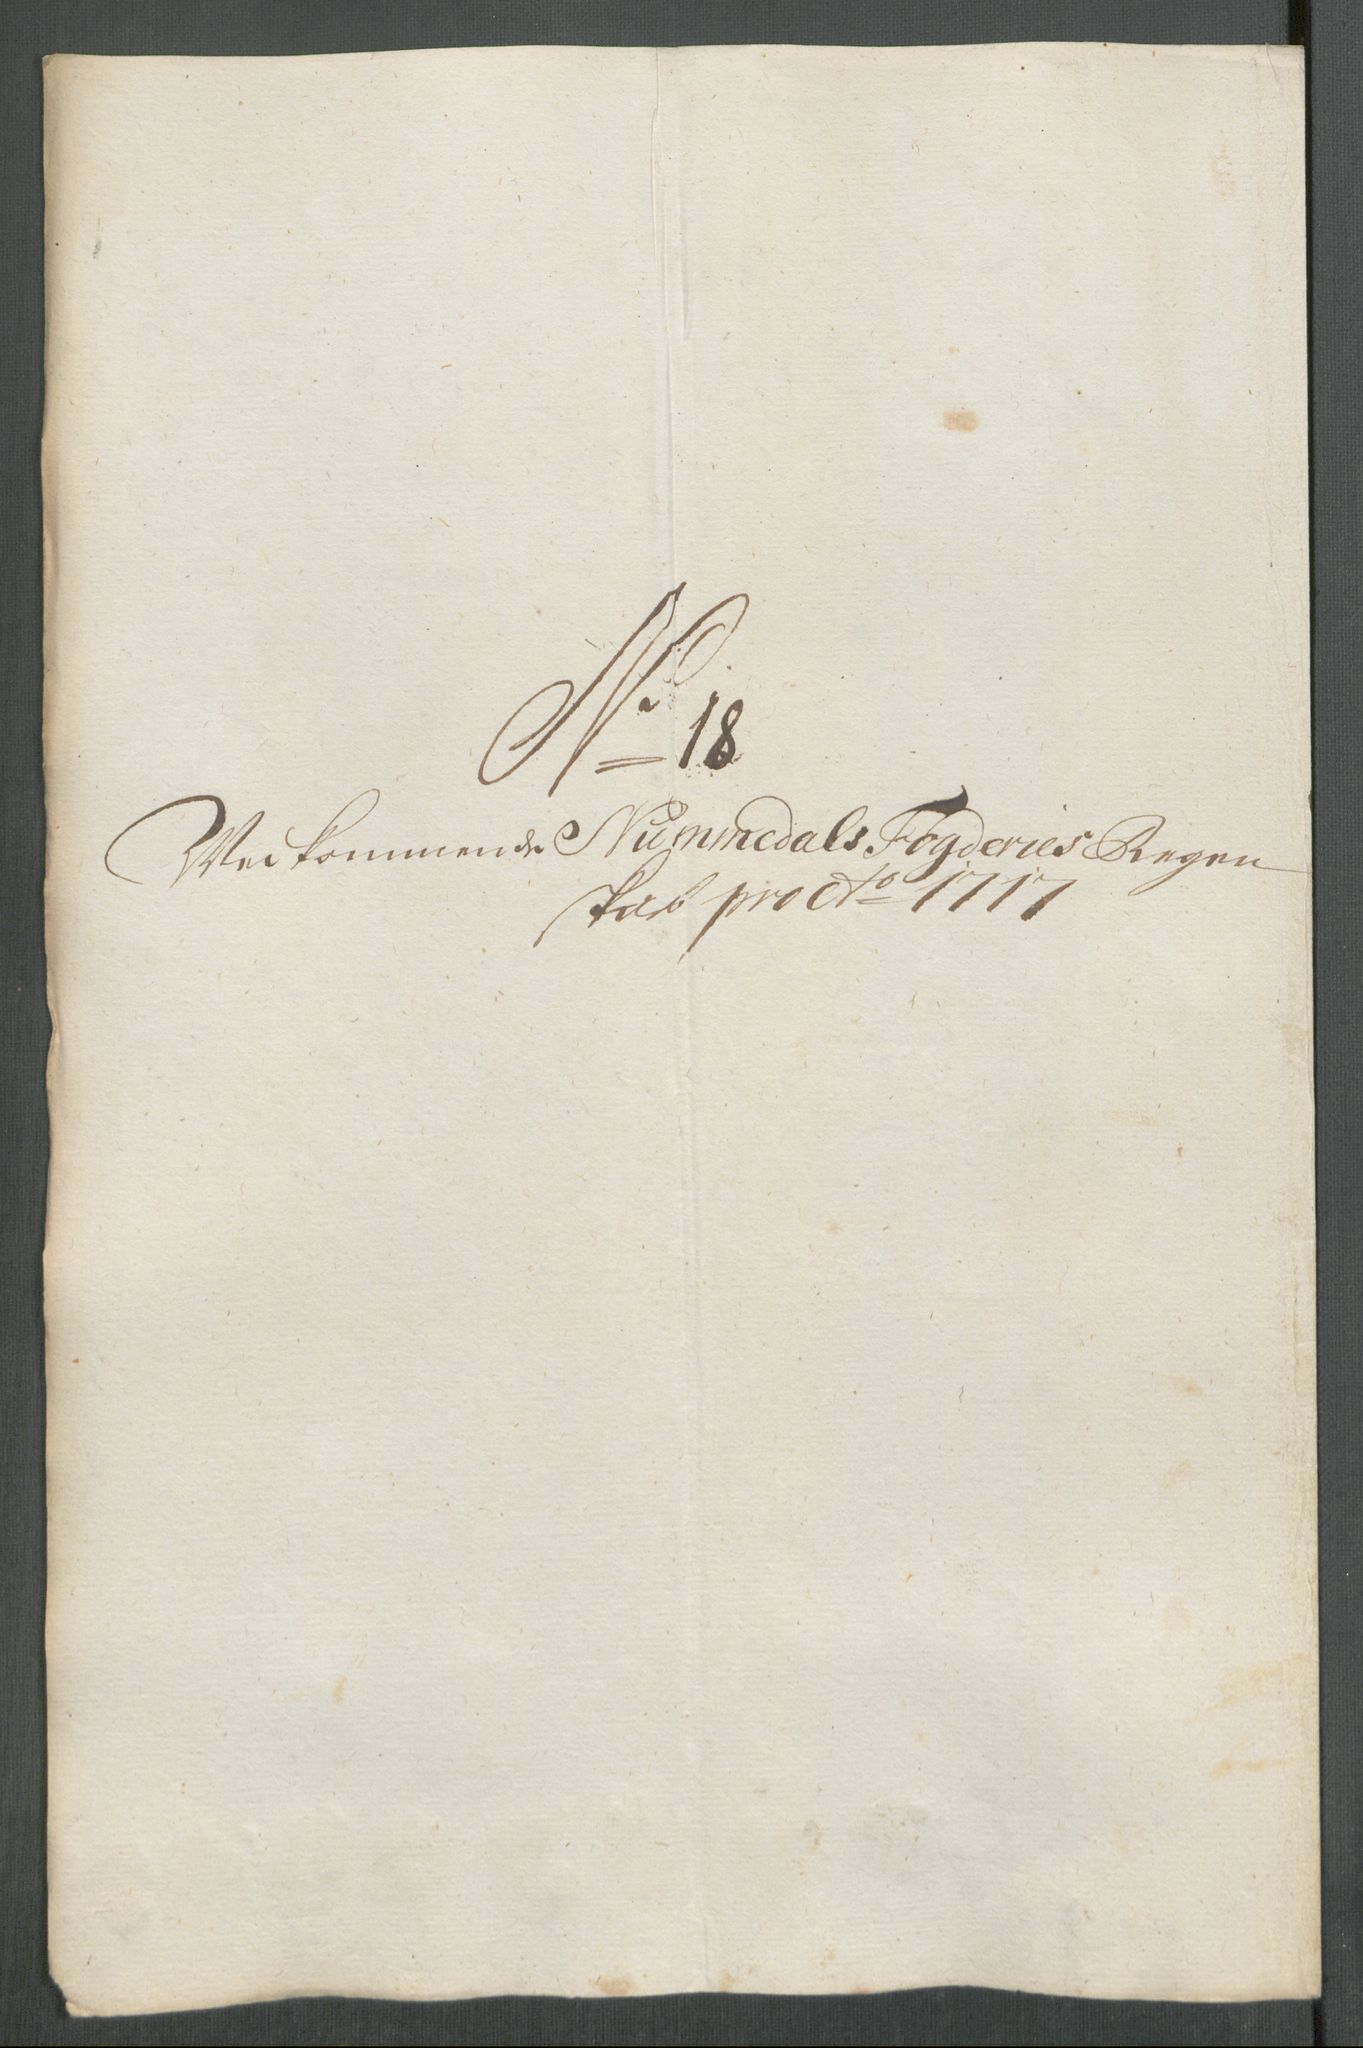 No 18
Wedkommende Nummedals Fogderies Regen
skab pro Ao 1717